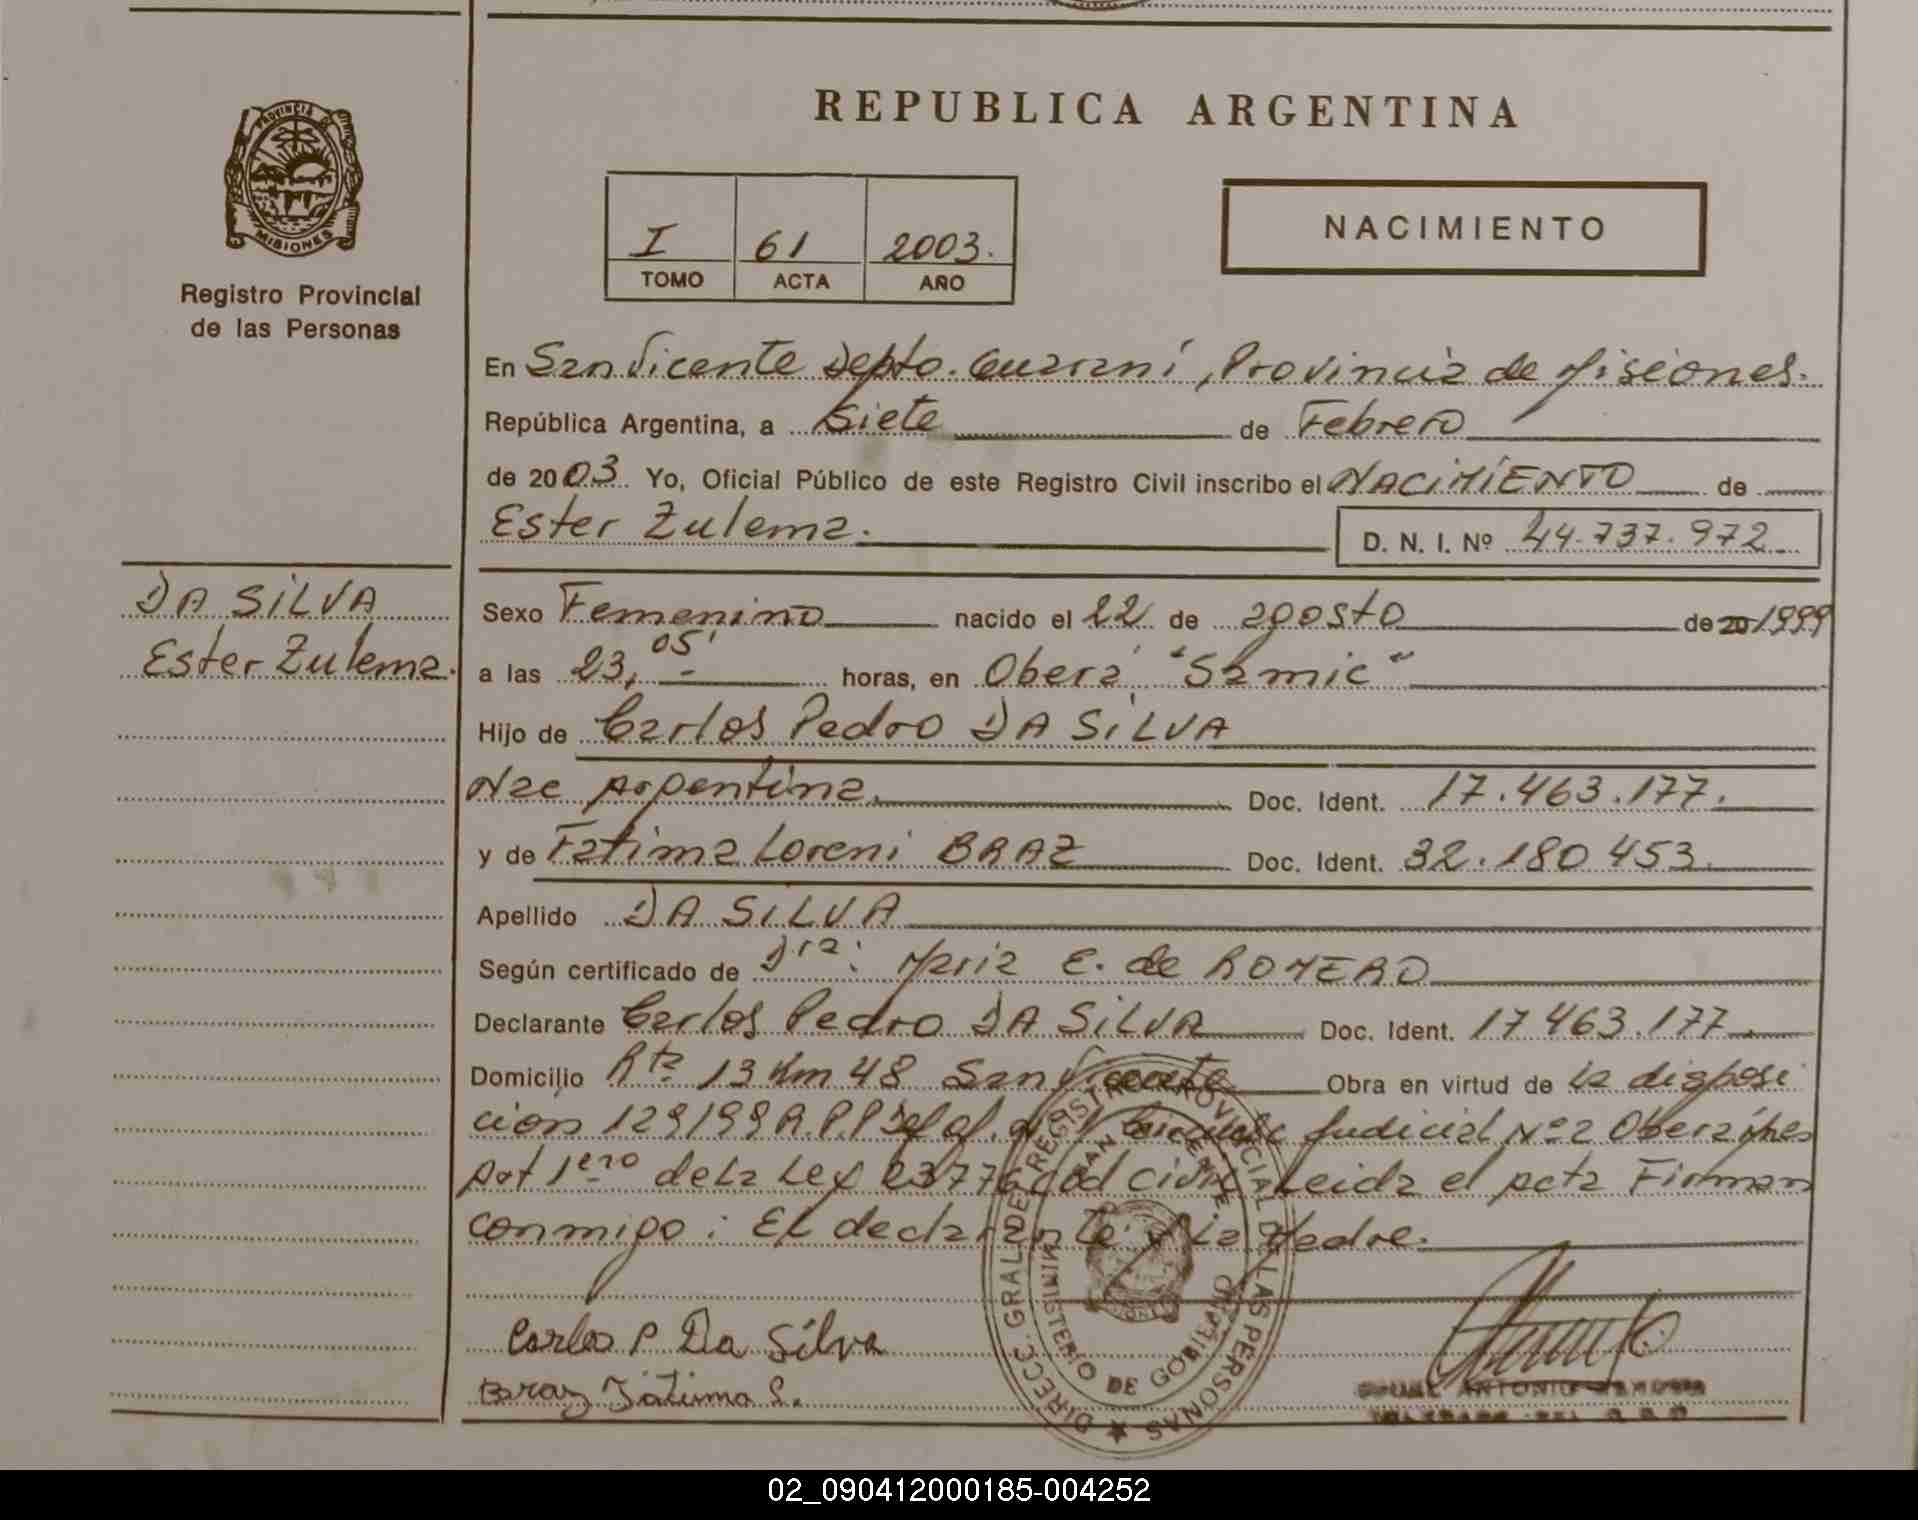 REPUBLICA ARGENTINA
PROVINCIA DE
MISIONES
Registro Provincial
de las Personas
I 61 2003.
TOMO ACTA AÑO
NACIMIENTO
En San Vicente Depto. Guaraní, Provincia de Misiones.
República Argentina, a Siete de Febrero
de 2003 Yo, Oficial Público de este Registro Civil inscribo el NACIMIENTO de
Ester Zulema. D. N. I. Nº 44.737.972
DA SILVA
Ester Zulema.
Sexo Femenino nacido el 22 de agosto de 20 1999
a las 23,05' horas, en Oberá "Samic"
Hijo de Carlos Pedro DA SILVA
Nac Argentina. Doc. Ident. 17.463.177.
y de Fatima Loreni BRAZ Doc. Ident. 32.180 453.
Apellido DA SILVA
Según certificado de Dra: Maria E. de ROMERO
Declarante Carlos Pedro DA SILVA Doc. Ident. 17 463.177.
Domicilio Rta 13 Km 48 San Vicente Obra en virtud de la disposi
cion 129/99 R.P.P Judicial Nº 2 Oberá
Art 1ero de la Ley 23776 Cod Civil Leida el acta Firman
conmigo: El declarante y la Madre.
DIRECC. GRAL. DE REGISTRO PROVINCIAL DE LAS PERSONAS
MINISTERIO DE GOBIERNO
SAN VICENTE
Carlos P. Da Silva
Braz Fátima L.
ANTONIO
02_090412000185-004252